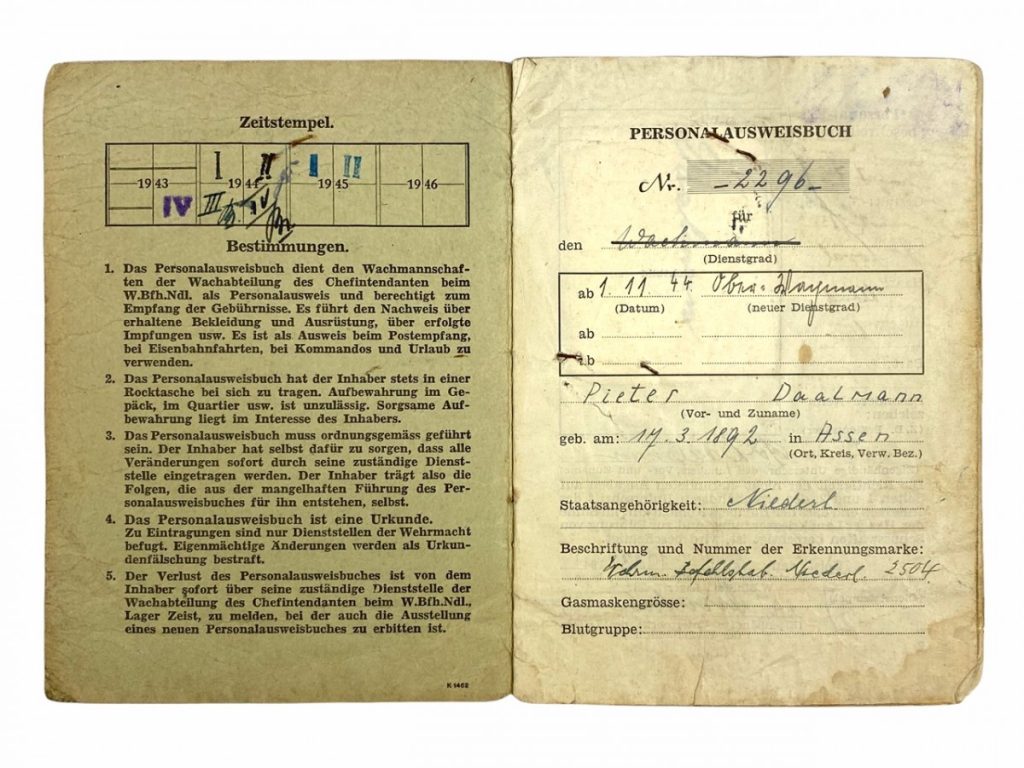 Zeitstempel.
1943 1944 1945 1946
I II I II
IV III IV
Bestimmungen.
1. Das Personalausweisbuch dient den Wachmannschaf-
ten der Wachabteilung des Chefintendanten beim
W.Bfh.Ndl. als Personalausweis und berechtigt zum
Empfang der Gebührnisse. Es führt den Nachweis über
erhaltene Bekleidung und Ausrüstung, über erfolgte
Impfungen usw. Es ist als Ausweis beim Postempfang,
bei Eisenbahnfahrten, bei Kommandos und Urlaub zu
verwenden.
2. Das Personalausweisbuch hat der Inhaber stets in einer
Rocktasche bei sich zu tragen. Aufbewahrung im Ge-
päck, im Quartier usw. ist unzulässig. Sorgsame Auf-
bewahrung liegt im Interesse des Inhabers.
3. Das Personalausweisbuch muss ordnungsgemäss geführt
sein. Der Inhaber hat selbst dafür zu sorgen, dass alle
Veränderungen sofort durch seine zuständige Dienst-
stelle eingetragen werden. Der Inhaber trägt also die
Folgen, die aus der mangelhaften Führung des Per-
sonalausweisbuches für ihn entstehen, selbst.
4. Das Personalausweisbuch ist eine Urkunde.
Zu Eintragungen sind nur Dienststellen der Wehrmacht
befugt. Eigenmächtige Änderungen werden als Urkun-
denfälschung bestraft.
5. Der Verlust des Personalausweisbuches ist von dem
Inhaber sofort über seine zuständige Dienststelle der
Wachabteilung des Chefintendanten beim W.Bfh.Ndl.,
Lager Zeist, zu melden, bei der auch die Ausstellung
eines neuen Personalausweisbuches zu erbitten ist.
K 1462
PERSONALAUSWEISBUCH
Nr. -2296-
für
den Wachmann
(Dienstgrad)
ab 1 11 44 Ober-Wachmann
(Datum) (neuer Dienstgrad)
ab
ab
Pieter Daalmann
(Vor- und Zuname)
geb. am: 17.3.1892 in Assen
(Ort, Kreis, Verw. Bez.)
Staatsangehörigkeit: Niederl
Beschriftung und Nummer der Erkennungsmarke:
Niederl. 2504
Gasmaskengrösse:
Blutgruppe: